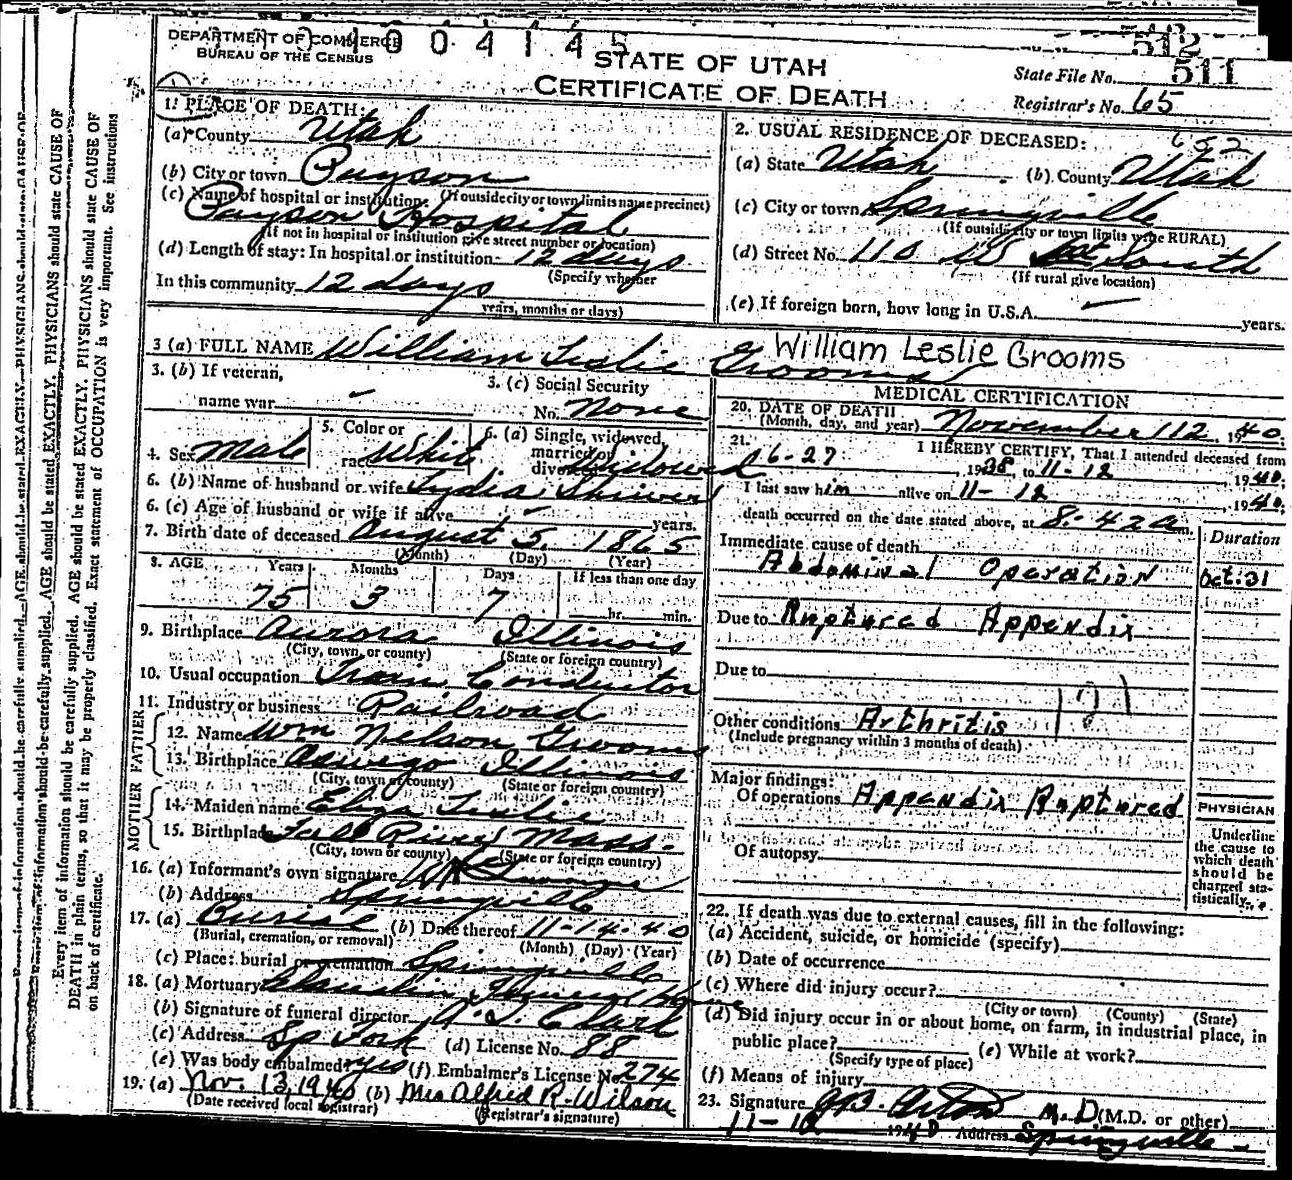 DEPARTMENT OF COMMERCE
BUREAU OF THE CENSUS
0 0 4 1 4 5
STATE OF UTAH
CERTIFICATE OF DEATH
512
State File No. 511
Registrar's No. 65
1. PLACE OF DEATH:
(a) County Utah
(b) City or town Payson
(If outside city or town limits name precinct)
(c) Name of hospital or institution:
Payson Hospital
(If not in hospital or institution give street number or location)
(d) Length of stay: In hospital or institution 12 days
(Specify whether
In this community 12 days
years, months or days)
2. USUAL RESIDENCE OF DECEASED: 652
(a) State Utah (b) County Utah
(c) City or town Springville
(If outside city or town limits write RURAL)
(d) Street No. 110 South
(If rural give location)
(e) If foreign born, how long in U.S.A. years.
3 (a) FULL NAME William Leslie Grooms William Leslie Grooms
3. (b) If veteran,
name war
3. (c) Social Security
No. None
4. Sex Male
5. Color or
race White
6. (a) Single, widowed,
married or
divorced Widowed
6. (b) Name of husband or wife Lydia
6. (c) Age of husband or wife if alive years.
7. Birth date of deceased August 5 1865
(Month) (Day) (Year)
8. AGE Years Months Days If less than one day
75 3 7 hr. min.
9. Birthplace Aurora Illinois
(City, town, or county) (State or foreign country)
10. Usual occupation Train Conductor
11. Industry or business Railroad
FATHER
12. Name Wm Nelson Grooms
13. Birthplace Oswego Illinois
(City, town or county) (State or foreign country)
MOTHER
14. Maiden name Eliza Leslie
15. Birthplace Fall River Mass.
(City, town or county) (State or foreign country)
16. (a) Informant's own signature Grooms
(b) Address Springville
17. (a) Burial (b) Date thereof 11-14-40
(Burial, cremation, or removal) (Month) (Day) (Year)
(c) Place: burial or cremation Springville
18. (a) Mortuary Funeral Home
(b) Signature of funeral director Clark
(c) Address Sp Fork (d) License No. 88
(e) Was body embalmed? yes (f) Embalmer's License No. 274
19. (a) Nov. 13, 1940 (b) Mrs Alfred R. Wilson
(Date received local registrar) (Registrar's signature)
MEDICAL CERTIFICATION
20. DATE OF DEATH
(Month, day, and year) November 12, 1940;
21. I HEREBY CERTIFY, That I attended deceased from
6-27, 1938, to 11-12, 1940;
I last saw him alive on 11-12, 1940;
death occurred on the date stated above, at 8:42 a m.
Immediate cause of death Duration
Abdominal Operation Oct. 31
Due to Ruptured Appendix
Due to
Other conditions Arthritis
(Include pregnancy within 3 months of death)
Major findings:
Of operations Appendix Ruptured
Of autopsy
PHYSICIAN
Underline
the cause to
which death
should be
charged sta-
tistically.
22. If death was due to external causes, fill in the following:
(a) Accident, suicide, or homicide (specify)
(b) Date of occurrence
(c) Where did injury occur?
(City or town) (County) (State)
(d) Did injury occur in or about home, on farm, in industrial place, in
public place? (e) While at work?
(Specify type of place)
(f) Means of injury
23. Signature M. D. (M.D. or other)
1940 Address Springville
Every item of information should be carefully supplied. AGE should be stated EXACTLY. PHYSICIANS should state CAUSE OF
DEATH in plain terms, so that it may be properly classified. Exact statement of OCCUPATION is very important. See instructions
on back of certificate.